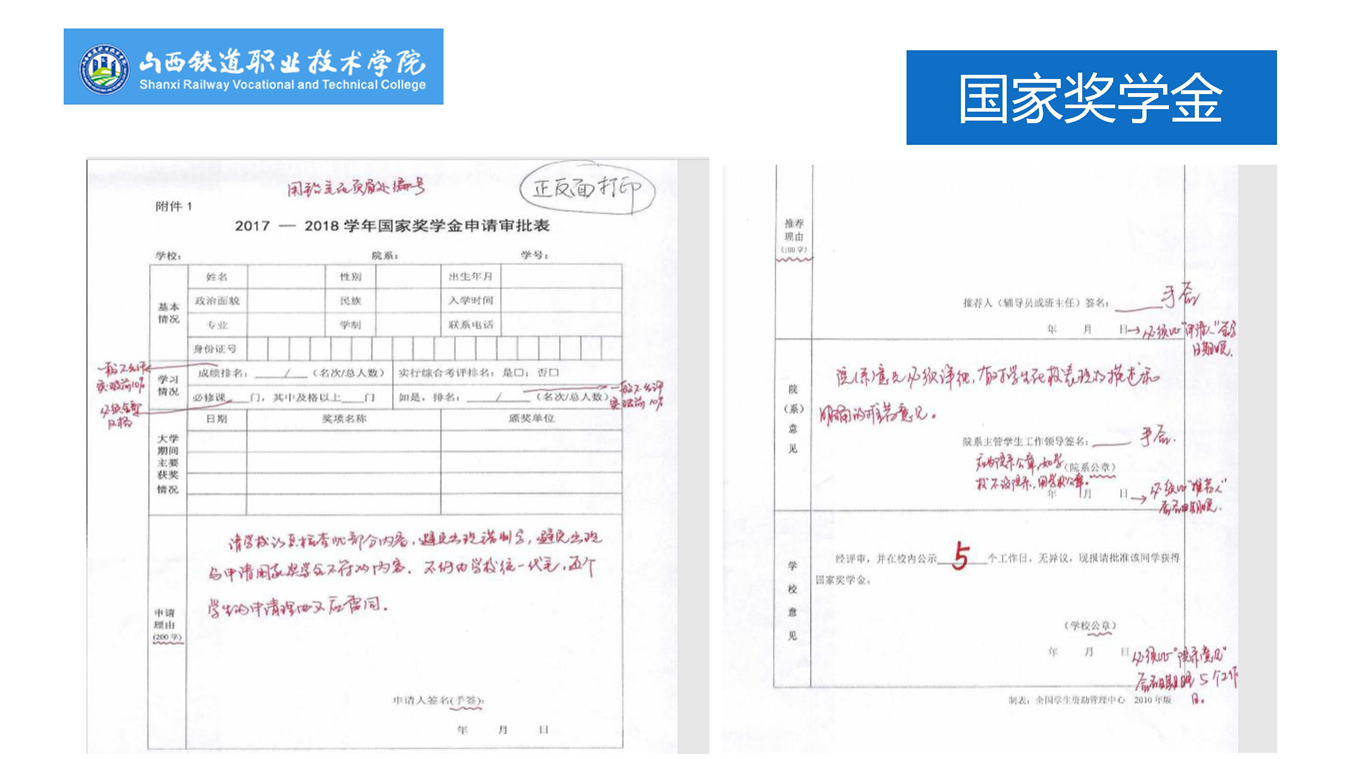 山西铁道职业技术学院
Shanxi Railway Vocational and Technical College
国家奖学金
正反面打印
附件 1
2017 — 2018 学年国家奖学金申请审批表
学校： 院系： 学号：
基本情况
姓名 性别 出生年月
政治面貌 民族 入学时间
专业 学制 联系电话
身份证号
学习情况
成绩排名：____/____（名次/总人数） 实行综合考评排名：是□；否□
必修课____门，其中及格以上____门 如是，排名：____/____（名次/总人数）
一般不允许
突破前10%
必须全部
及格
一般不允许
突破前10%
大学期间主要获奖情况
日期 奖项名称 颁奖单位
申请理由
(200 字)
请学校认真检查此部分内容，避免出现错别字，避免出现
与申请国家奖学金不符的内容．不得由学校统一代写，每个
学生的申请理由又应雷同．
申请人签名(手签)：
年 月 日
推荐理由
(100 字)
推荐人（辅导员或班主任）签名：
手签
年 月 日
必须比"申请人"签名
日期晚．
院（系）意见
院（系）意见必须详细，有对学生在校表现的描述和
明确的推荐意见．
院系主管学生工作领导签名：
手签．
应为院系公章，如学
（院系公章）
校不设院系，用学校公章．
年 月 日
必须比"推荐人"
签名日期晚．
学校意见
经评审，并在校内公示 5 个工作日，无异议，现报请批准该同学获得
国家奖学金。
（学校公章）
年 月 日
必须比"院系意见"
签名日期晚 5个工作
日。
制表：全国学生资助管理中心 2010 年版